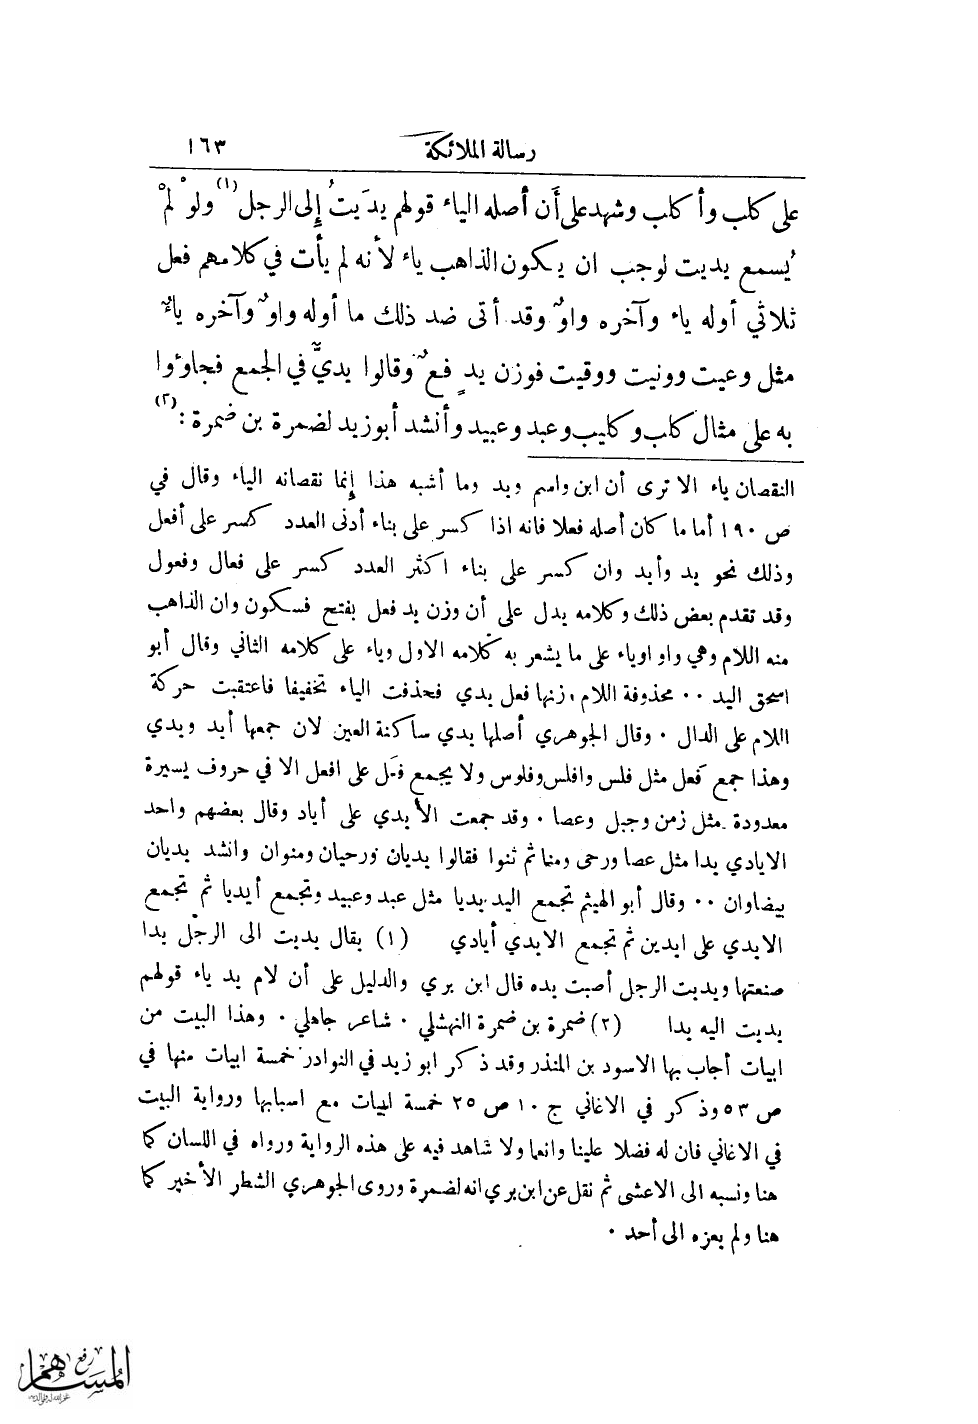 رسالة الملائكة ١٦٣
على كلب وأكلب وشهد على أَن أصله الياء قولهم يدَيتُ إِلى الرجل(١) ولوْ لمْ
يُسمع يديت لوجب ان يكون الذاهب ياء لأنه لم يأت في كلامهم فعل
ثلاثي أوله ياء وآخره واوٌ وقد أتى ضد ذلك ما أوله واوٌ وآخره ياءٌ
مثل وعيت وونيت ووقيت فوزن يدٍ فعٌ وقالوا يديٌّ في الجمع فجاوءُوا
به على مثال كلب وكليب وعبد وعبيد وأنشد أبوزيد لضمرة بن ضمرة:(٢)
النقصان ياء الا ترى أن ابن واسم ويد وما أشبه هذا إنما نقصانه الياء وقال في
ص ١٩٠ أما ما كان أصله فعلا فانه اذا كسر على بناء أدنى العدد كسر على أفعل
وذلك نحو يد وأيد وان كسر على بناء اكثر العدد كسر على فعال وفعول
وقد تقدم بعض ذلك وكلامه يدل على أن وزن يد فعل بفتح فسكون وان الذاهب
منه اللام وهي واو اوياء على ما يشعر به كلامه الاول وياء على كلامه الثاني وقال أبو
اسحق اليد ٠٠ محذوفة اللام وزنها فعل يدي فحذفت الياء تخفيفا فاعتقبت حركة
اللام على الدال ٠ وقال الجوهري أصلها يدي ساكنة العين لان جمعها أيد ويدي
وهذا جمع فعل مثل فلس وافلس وفلوس ولا يجمع فعل على افعل الا في حروف يسيرة
معدودة مثل زمن وجبل وعصا ٠ وقد جمعت الأيدي على أياد وقال بعضهم واحد
الايادي يدا مثل عصا ورحى ومنا ثم ثنوا فقالوا يديان ورحيان ومنوان وانشد يديان
بيضاوان ٠٠ وقال أبو الهيثم تجمع اليد يديا مثل عبد وعبيد وتجمع أيديا ثم تجمع
الايدي على ايدين ثم تجمع الايدي أيادي (١) يقال يديت الى الرجل يدا
صنعتها ويديت الرجل أصبت يده قال ابن بري والدليل على أن لام يد ياء قولهم
يديت اليه يدا (٢) ضمرة بن ضمرة النهشلي ٠ شاعر جاهلي ٠ وهذا البيت من
ابيات أجاب بها الاسود بن المنذر وقد ذكر ابو زيد في النوادر خمسة ابيات منها في
ص ٥٣ وذكر في الاغاني ج ١٠ ص ٢٥ خمسة ابيات مع اسبابها ورواية البيت
في الاغاني فان له فضلا علينا وانعما ولا شاهد فيه على هذه الرواية ورواه في اللسان كما
هنا ونسبه الى الاعشى ثم نقل عن ابن بري انه لضمرة وروى الجوهري الشطر الأخير كما
هنا ولم يعزه الى أحد ٠
رفع
المساهم